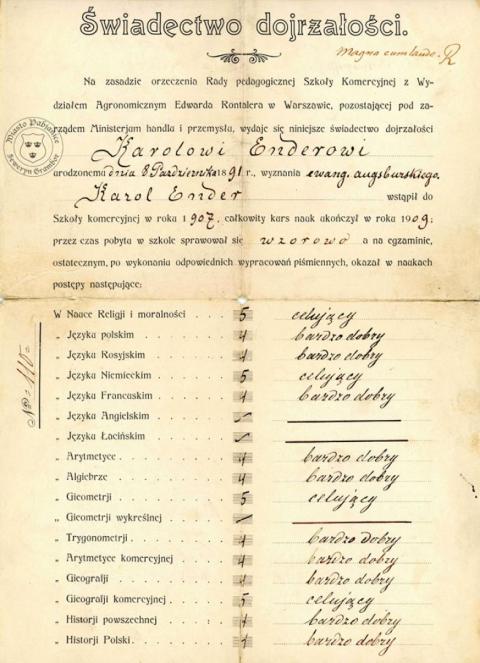 Świadectwo dojrzałości.
Magna cum laude. R
Na zasadzie orzeczenia Rady pedagogicznej Szkoły Komercyjnej z Wy-
działem Agronomicznym Edwarda Rontalera w Warszawie, pozostającej pod za-
rządem Ministerjum handlu i przemysłu, wydaje się niniejsze świadectwo dojrzałości
Karolowi Enderowi
urodzonemu dnia 8 Października 1891 r., wyznania ewang. augsburskiego.
Karol Ender wstąpił do
Szkoły komercyjnej w roku 1907, całkowity kurs nauk ukończył w roku 1909;
przez czas pobytu w szkole sprawował się wzorowo a na egzaminie,
ostatecznym, po wykonaniu odpowiednich wypracowań piśmiennych, okazał w naukach
postępy następujące:
Miasto Pabjanice
Seweryn Grambor
№ 110
W Nauce Religji i moralności . . . 5 celujący
„ Języku polskim . . . . . . 4 bardzo dobry
„ Języku Rosyjskim . . . . . 4 bardzo dobry
„ Języku Niemieckim . . . . . 5 celujący
„ Języku Francuskim . . . . . 4 bardzo dobry
„ Języku Angielskim . . . . . –
„ Języku Łacińskim . . . . . –
„ Arytmetyce . . . . . . . 4 bardzo dobry
„ Algiebrze . . . . . . . 4 bardzo dobry
„ Gieometrji . . . . . . . 5 celujący
„ Gieometrji wykreślnej . . . . –
„ Trygonometrji . . . . . . 4 bardzo dobry
„ Arytmetyce komercyjnej . . . 4 bardzo dobry
„ Gieografji . . . . . . . 4 bardzo dobry
„ Gieografji komercyjnej . . . . 5 celujący
„ Historji powszechnej . . . . 4 bardzo dobry
„ Historji Polski . . . . . . 4 bardzo dobry